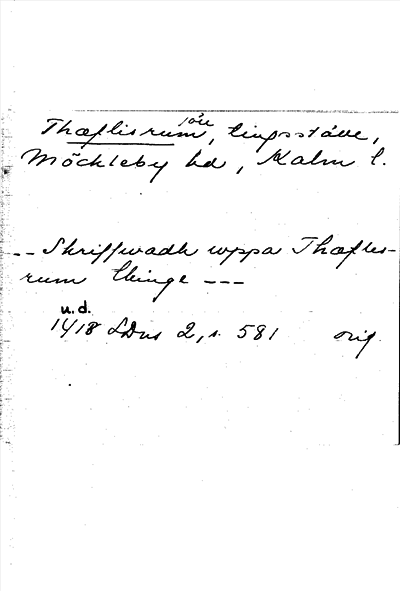 Thæflisrum, tingsställe,
Möckleby hd, Kalm l.
-- Skriffwadh uppa Thæfles-
rum thinge ---
u.d.
1418 SDns 2, s. 581 orig.